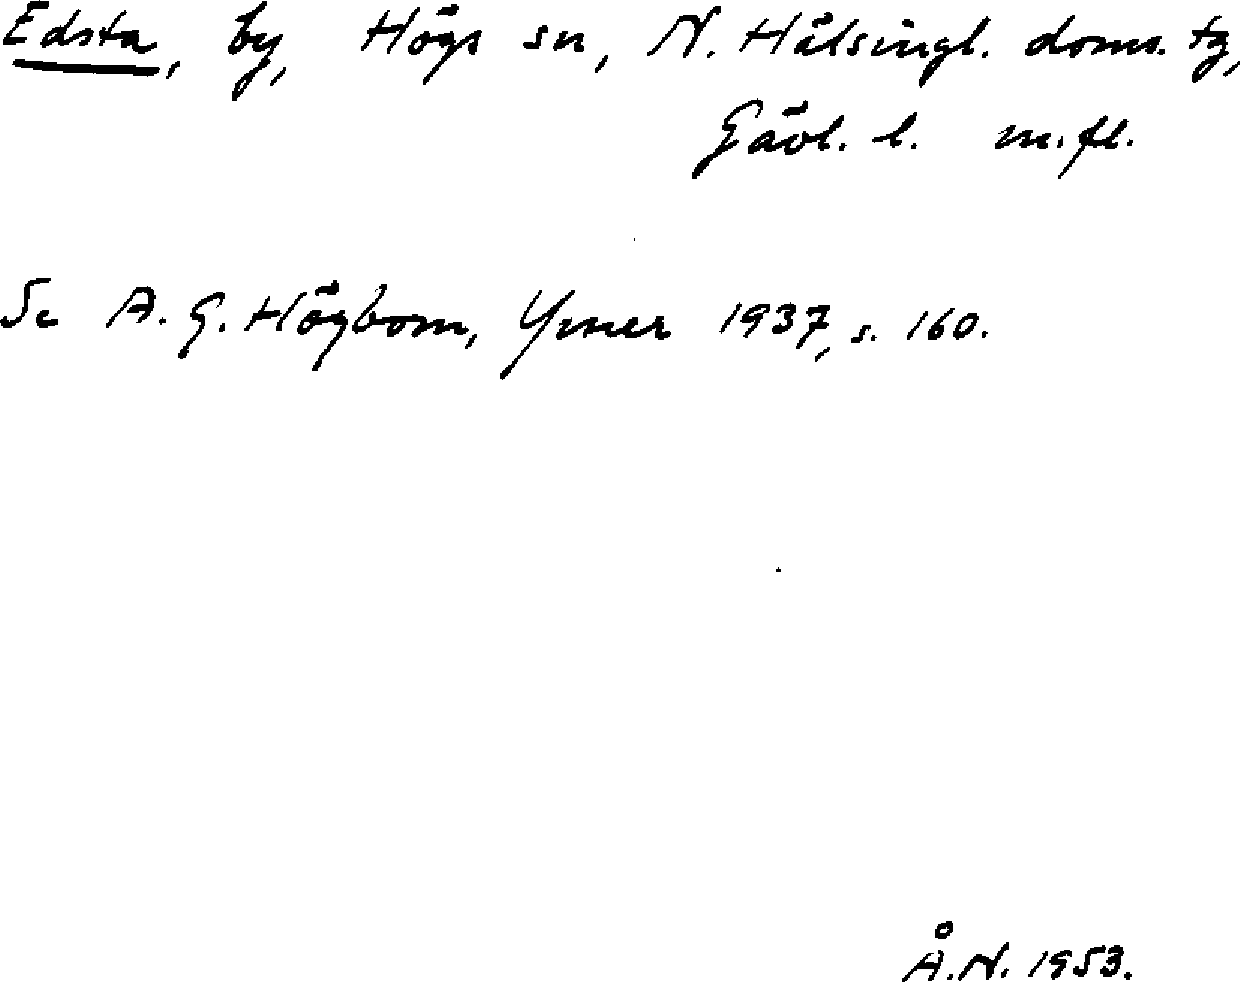 Edsta, by, Högs sn, N. Hälsingl. doms. tg,
Gävl. l. m.fl.
Se A. G. Högbom, Ymer 1937, s. 160.
Å.N. 1953.